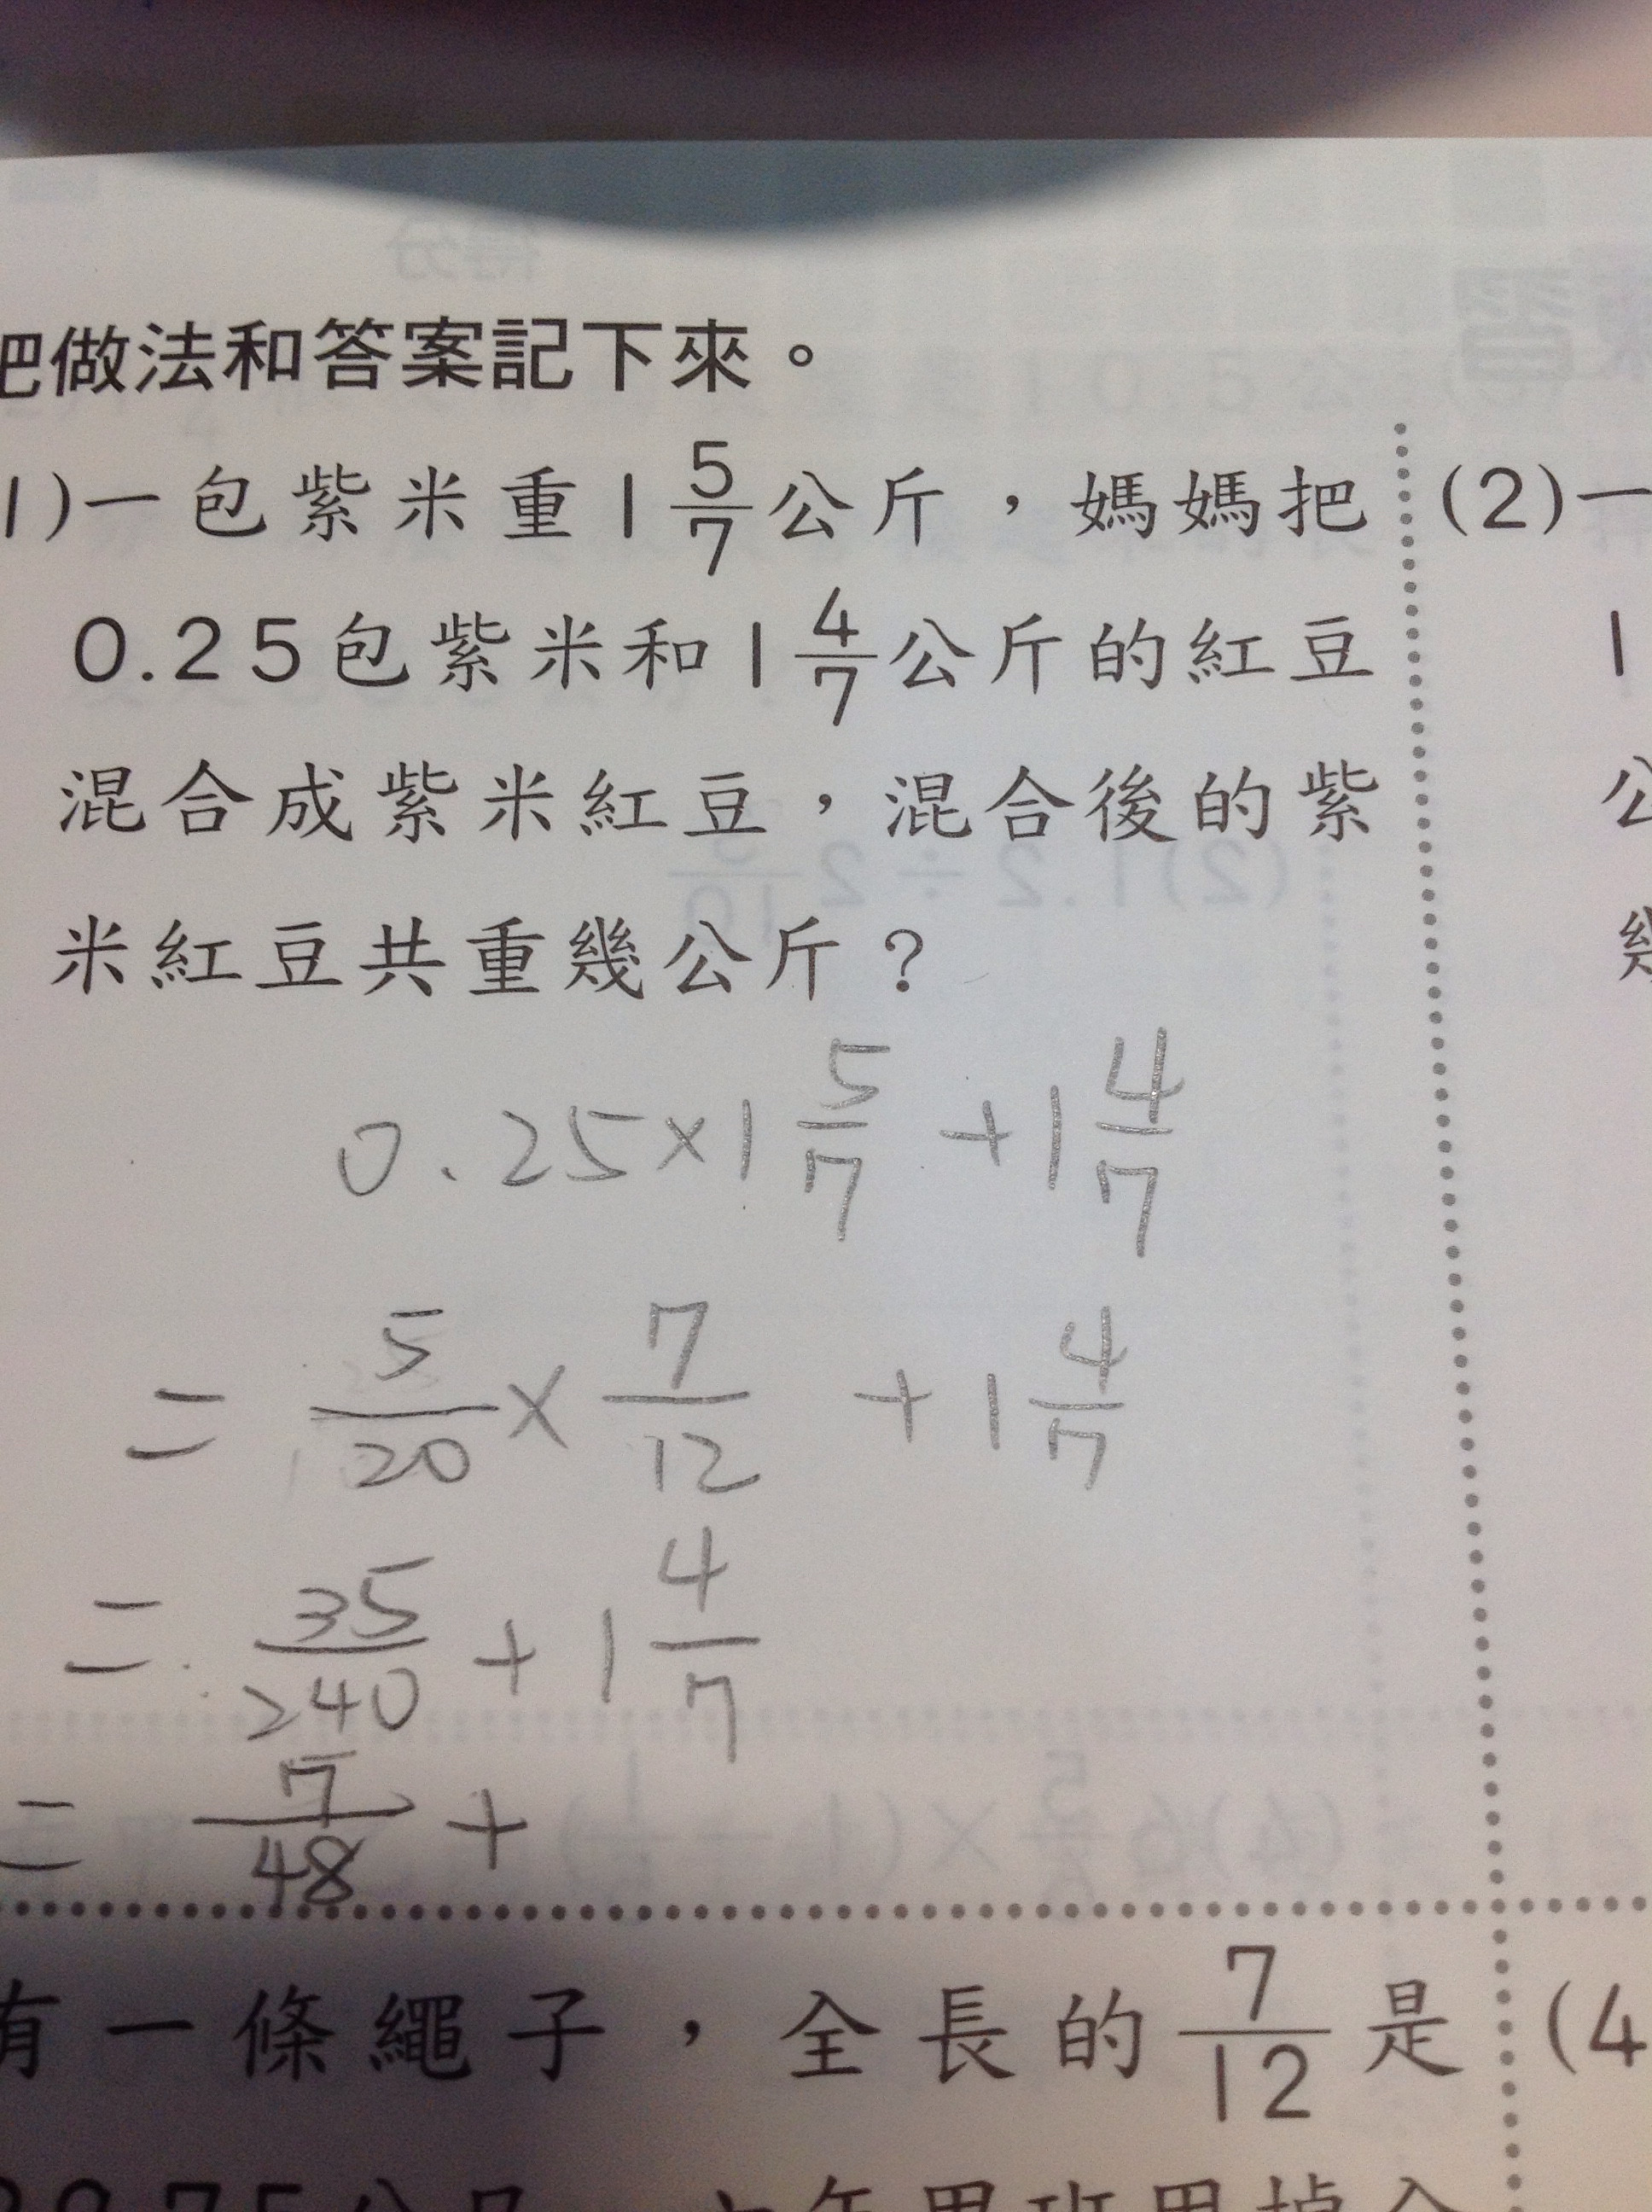 把做法和答案記下來。
1)一包紫米重1 5/7公斤，媽媽把
0.25包紫米和1 4/7公斤的紅豆
混合成紫米紅豆，混合後的紫
米紅豆共重幾公斤？
0.25×1 5/7 +1 4/7
= 5/20 × 7/12 +1 4/7
= 35/240 + 1 4/7
= 7/48 +
有一條繩子，全長的 7/12 是
(2)一
1
公
幾
(4